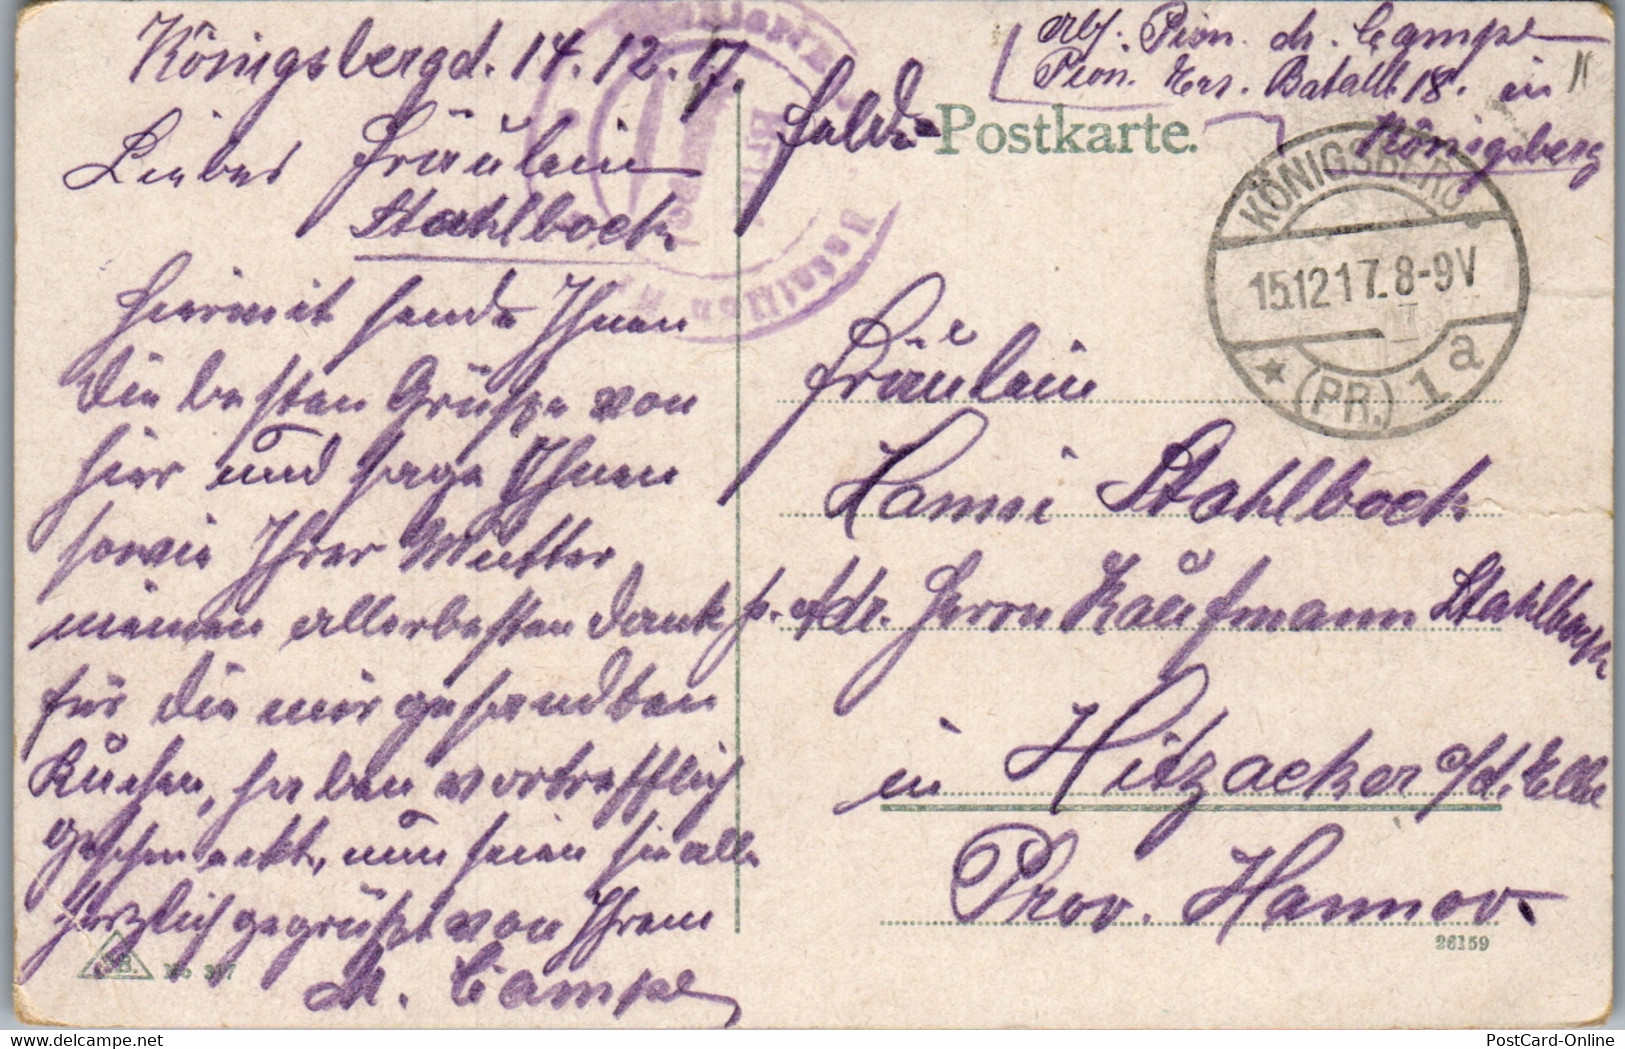 Königsbergd. 14.12.17.
Liebes Fräulein
Stahlbock
Hiermit sende Ihnen
die besten Grüße von
hier und sage Ihnen
sowie Ihrer Mutter
meinen allerbesten Dank
für die mir gesandten
Kuchen, haben vortrefflich
geschmeckt, nun seien sie alle
herzlich gegrüßt von Ihrem
M. Campe
No 397
Abs. Pion. M. Campe
Pion. Ers. Batall. 18. in
Königsberg
Feld-Postkarte.
KÖNIGSBERG
15.12.17. 8-9V
★ (PR.) 1 a
Fräulein
Hanni Stahlbock
p. Adr. Herrn Kaufmann Stahlbock
in Hitzacker a/d. Elbe
Prov. Hannov.
26159
PostCard-Online